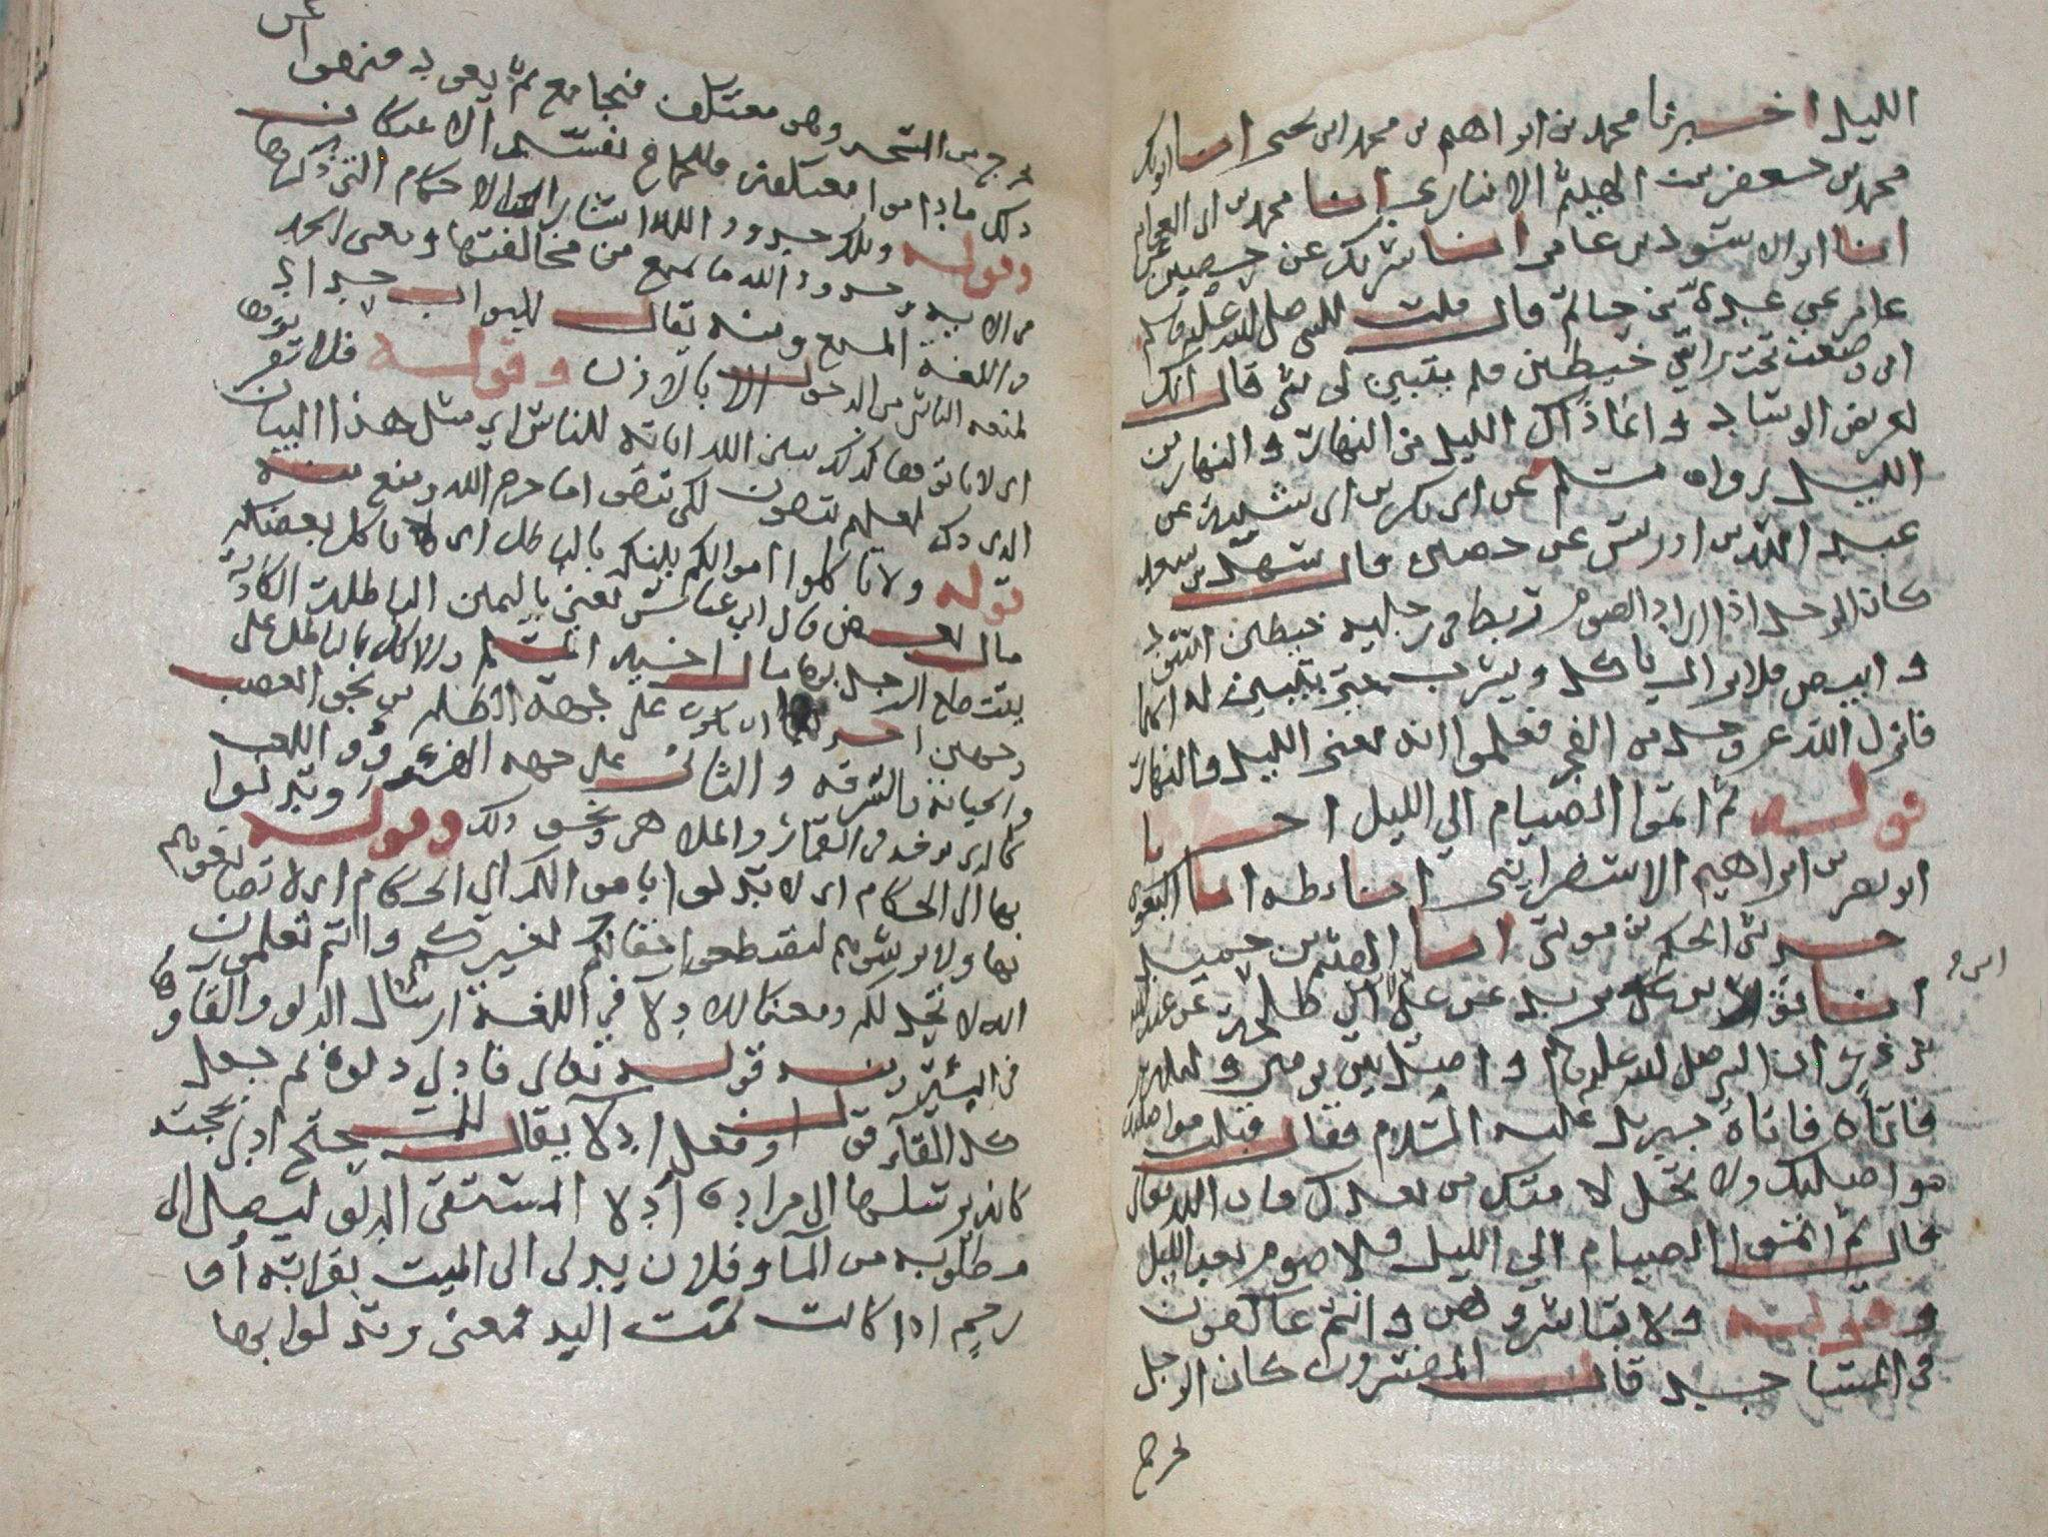 الليل اخبرنا محمد بن ابراهيم بن محمد ابن يحيى انبا ابوبكر
محمد بن جعفر بن الهيثم الانباري انبا محمد بن ابي العوام
انبا ابو الاسود بن عامر انبا شريك عن حصين عن
عامر عن عدي بن حاتم قال قلت للنبي صلى الله عليه وسلم
اني وضعت تحت راسي خيطين فلم يتبين لي شي قال انك
لعريض الوساد وانما ذاك الليل من النهار والنهار من
الليل رواه مسلم عن ابي بكر بن ابي شيبة عن
عبد الله بن ادريس عن حصين قال سهل بن سعد
كان الرجل اذا اراد الصوم ربط في رجليه خيطين اسود
وابيض فلا يزال ياكل ويشرب حتى يتبين له ايهما
فانزل الله عز وجل من الفجر فعلموا انه يعني الليل والنهار
قوله ثم اتموا الصيام الي الليل اخبرنا
ابو نصر بن ابراهيم الاسفرايني انبا بن بطه انبا البغوي
حدثني الحكم بن موسى انبا الهيثم بن حميد
انبا عن علي بن ابي طلحة عن عبد الملك
بن ذر ان النبي صلى الله عليه وسلم واصل بين يومين وليلة
فاتاه فاتاه جبريل عليه السلام فقال قبلت مواصلتك
مواصلتك ولا تحل لامتك من بعدك فان الله تعالى
قال ثم اتموا الصيام الي الليل فلا صوم بعد الليل
وقوله ولا تباشروهن وانتم عاكفون
في المساجد قال المفسرون كان الرجل
يخرج
يخرج من المسجد وهو معتكف فيجامع ثم يعود فنهوا عن
ذلك ما داموا معتكفين فالجماع يفسد الاعتكاف
وقوله وتلك حدود الله اشار الى الاحكام التي ذكرها
في الايه وحدود الله ما يمنع من مخالفتها ومعنى الحد
في اللغة المنع ومنه يقال للبواب حداد
لمنعه الناس من الدخول الا بالاذن وقوله فلا تقربوها
اى لا تاتوها كذلك يبين الله اياته للناس اي مثل هذا البيان
الذي ذكر لعلهم يتقون لكي يتقوا ما حرم الله ومنع منه
قوله ولا تاكلوا اموالكم بينكم بالباطل اى لا ياكل بعضكم
مال بعض قال ابن عباس يعني باليمين الباطلة الكاذبة
يقتطع الرجل بها مال اخيه المسلم والاكل بالباطل على
وجهين احدهما ان يكون على جهة الظلم من نحو الغصب
والخيانة والسرقه والثاني على جهه الهزؤ واللعب
كالذي يوخذ في القمار والملاهي ونحو ذلك وقوله وتدلوا
بها الى الحكام اى لا تدلوا باموالكم الى الحكام اى لا تصانعوهم
بها ولا ترشوهم ليقتطعوا حقا لغيركم وانتم تعلمون
انه لا يحل لكم ومعنا الادلا في اللغة ارسال الدلو والقاوها
في البئر ومنه قوله تعالى فادلى دلوه ثم جعل
كل القا قول او فعل ادلا يقال للمحتج ادلى بحجته
كانه يرسلها الى مراده ادلا المستقى الدلو ليصل الى
مطلوبه من الما وفلان يدلى الى الميت بقرابته او
رحم اذا كانت تمت اليه فمعنى وتدلوا بها